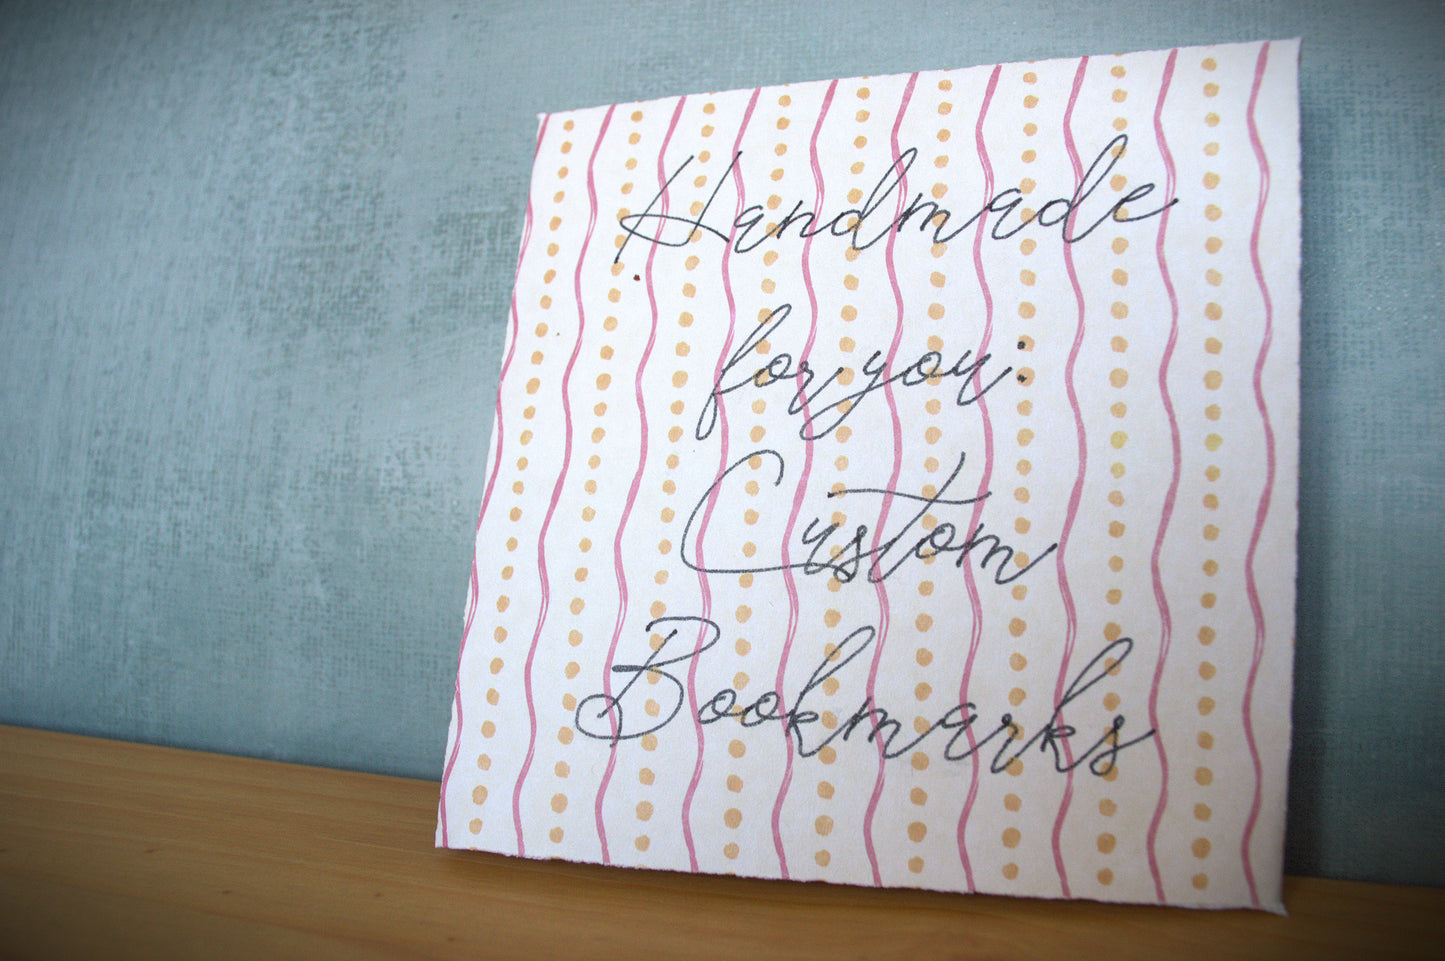 Handmade
for you:
Custom
Bookmarks